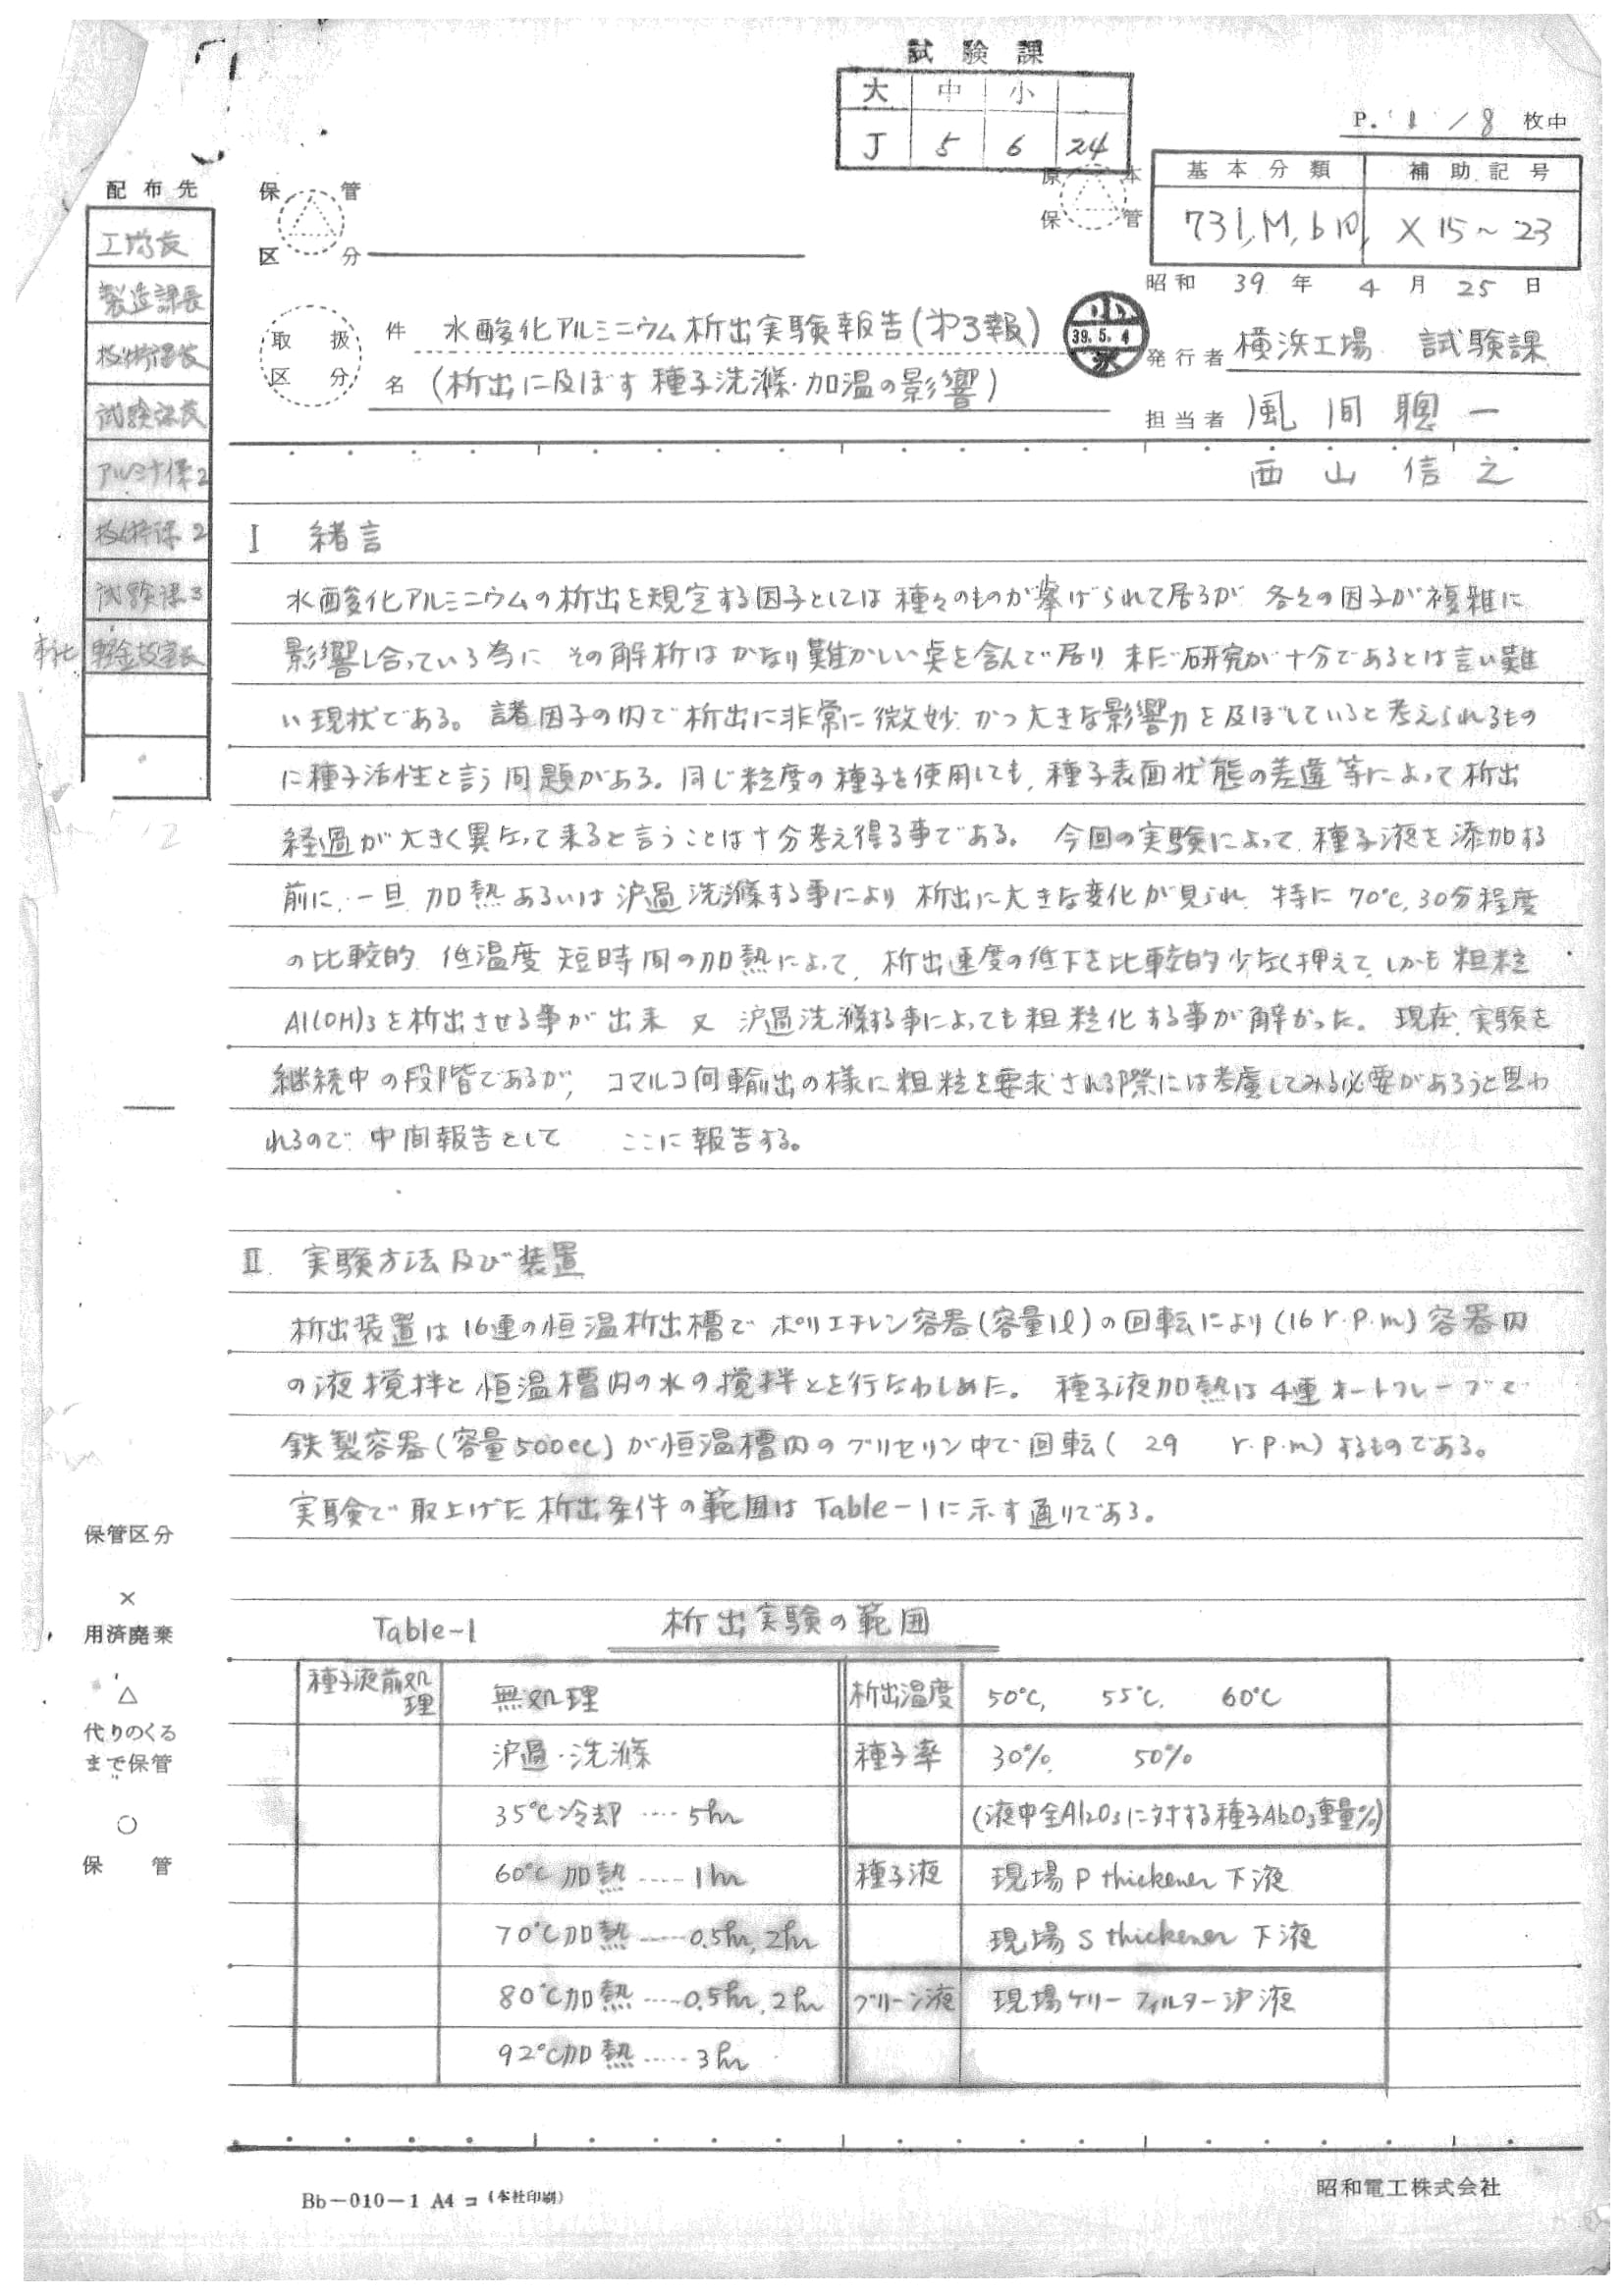 試験課
大 中 小
J 5 6 24
P. 1 / 8 枚中
基本分類 補助記号
731, M, b 10, X 15~23
配布先
工場長
製造課長
技術課長
試験課長
アルミナ係2
技術課2
試験課3
本社 軽金技室長
保管
区分
原本
保管
昭和 39 年 4 月 25 日
取扱
区分
件名 水酸化アルミニウム析出実験報告(第3報)
(析出に及ぼす種子洗滌・加温の影響)
小
39.5.4
発行者 横浜工場 試験課
担当者 風間聰一
西山信之
I 緒言
水酸化アルミニウムの析出を規定する因子としては種々のものが挙げられて居るが 各々の因子が複雑に
影響し合っている為に その解析はかなり難かしい奌を含んで居り 未だ研究が十分であるとは言い難
い現状である。諸因子の内で析出に非常に微妙かつ大きな影響力を及ぼしていると考えられるもの
に種子活性と言う問題がある。同じ粒度の種子を使用しても、種子表面状態の差違等によって析出
経過が大きく異なって来ると言うことは十分考え得る事である。 今回の実験によって、種子液を添加する
前に、一旦 加熱あるいは沪過洗滌する事により析出に大きな変化が見られ、特に 70℃, 30分程度
の比較的 低温度 短時間の加熱によって、析出速度の低下を比較的少なく押えて、しかも粗粒
Al(OH)3を析出させる事が出来 又 沪過洗滌する事によっても粗粒化する事が解かった。現在、実験を
継続中の段階であるが、コマルコ向輸出の様に粗粒を要求される際には考慮してみる必要があろうと思わ
れるので 中間報告として ここに報告する。
II. 実験方法及び装置
析出装置は16連の恒温析出槽で ポリエチレン容器(容量1l)の回転により(16 r.p.m)容器内
の液攪拌と恒温槽内の水の攪拌とを行なわしめた。 種子液加熱は4連オートクレーブで
鉄製容器(容量500cc)が恒温槽内のグリセリン中で回転( 29 r.p.m)するものである。
実験で取上げた析出条件の範囲はTable-1に示す通りである。
Table-1 析出実験の範囲
種子液前処理 無処理 析出温度 50℃, 55℃, 60℃
沪過・洗滌 種子率 30%, 50%
35℃冷却 ‥‥ 5hr (液中全Al2O3に対する種子Al2O3重量%)
60℃加熱 ‥‥ 1hr 種子液 現場 P thickener 下液
70℃加熱 ‥‥ 0.5hr, 2hr 現場 S thickener 下液
80℃加熱 ‥‥ 0.5hr, 2hr グリーン液 現場ケリーフィルター沪液
92℃加熱 ‥‥ 3hr
保管区分
×
用済廃棄
△
代りのくる
まで保管
○
保管
Bb-010-1 A4 コ (本社印刷)
昭和電工株式会社